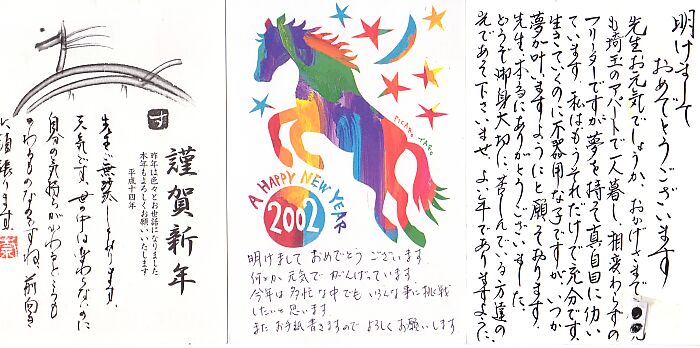 謹賀新年
昨年は色々とお世話になりました
本年もよろしくお願いいたします
平成十四年
自分の気持ちがかわるとうつも
かわるものなのですね。前向き
に頑張ります。
PICARO TARO
A HAPPY NEW YEAR
2002
明けまして おめでとう ございます
何とか元気で がんばっています。
今年は多忙な中でも いろんな事に挑戦
したいと思います
また お手紙書きますので よろしく お願いします
明けまして
おめでとうございます
先生お元気でしょうか。おかげさまで
も埼玉のアパートで一人暮し、相変わらずの
フリーターですが夢を持って真面目に働い
ています。私はもうそれだけで充分です。
生きていくのに不器用な子ですが、いつか
夢が叶いますようにと願っております。
先生、本当にありがとうございました。
どうぞ御身大切に、苦しんでいる方達の
光であって下さいませ。よい年でありますように。